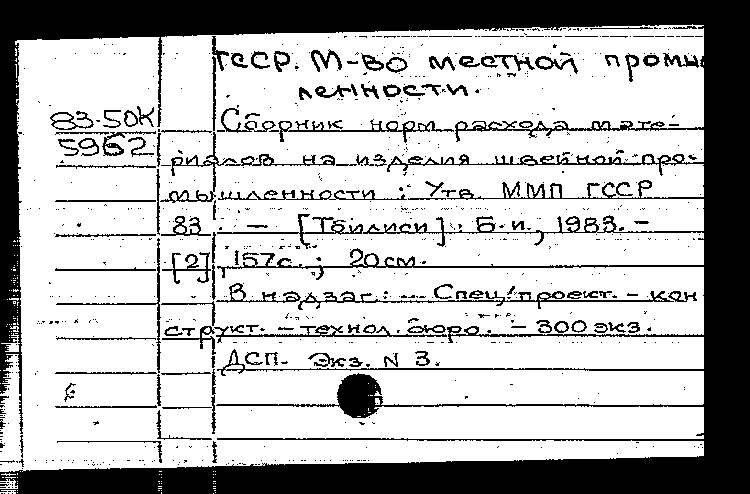 ГССР. М-во местной промыш
ленности.
83-50К
5962
Сборник норм расхода мате-
риалов на изделия швейной про-
мышленности : Утв. ММП ГССР
83. — [Тбилиси] : Б.и., 1983. —
[2], 157с. ; 20см.
В надзаг.: ... Спец. проект. - кон
структ. - технол. бюро. — 300 экз.
ДСП. Экз. N 3.